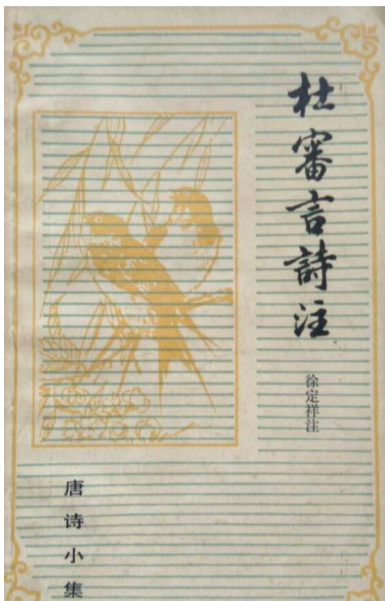 杜審言詩注
徐定祥注
唐诗小集